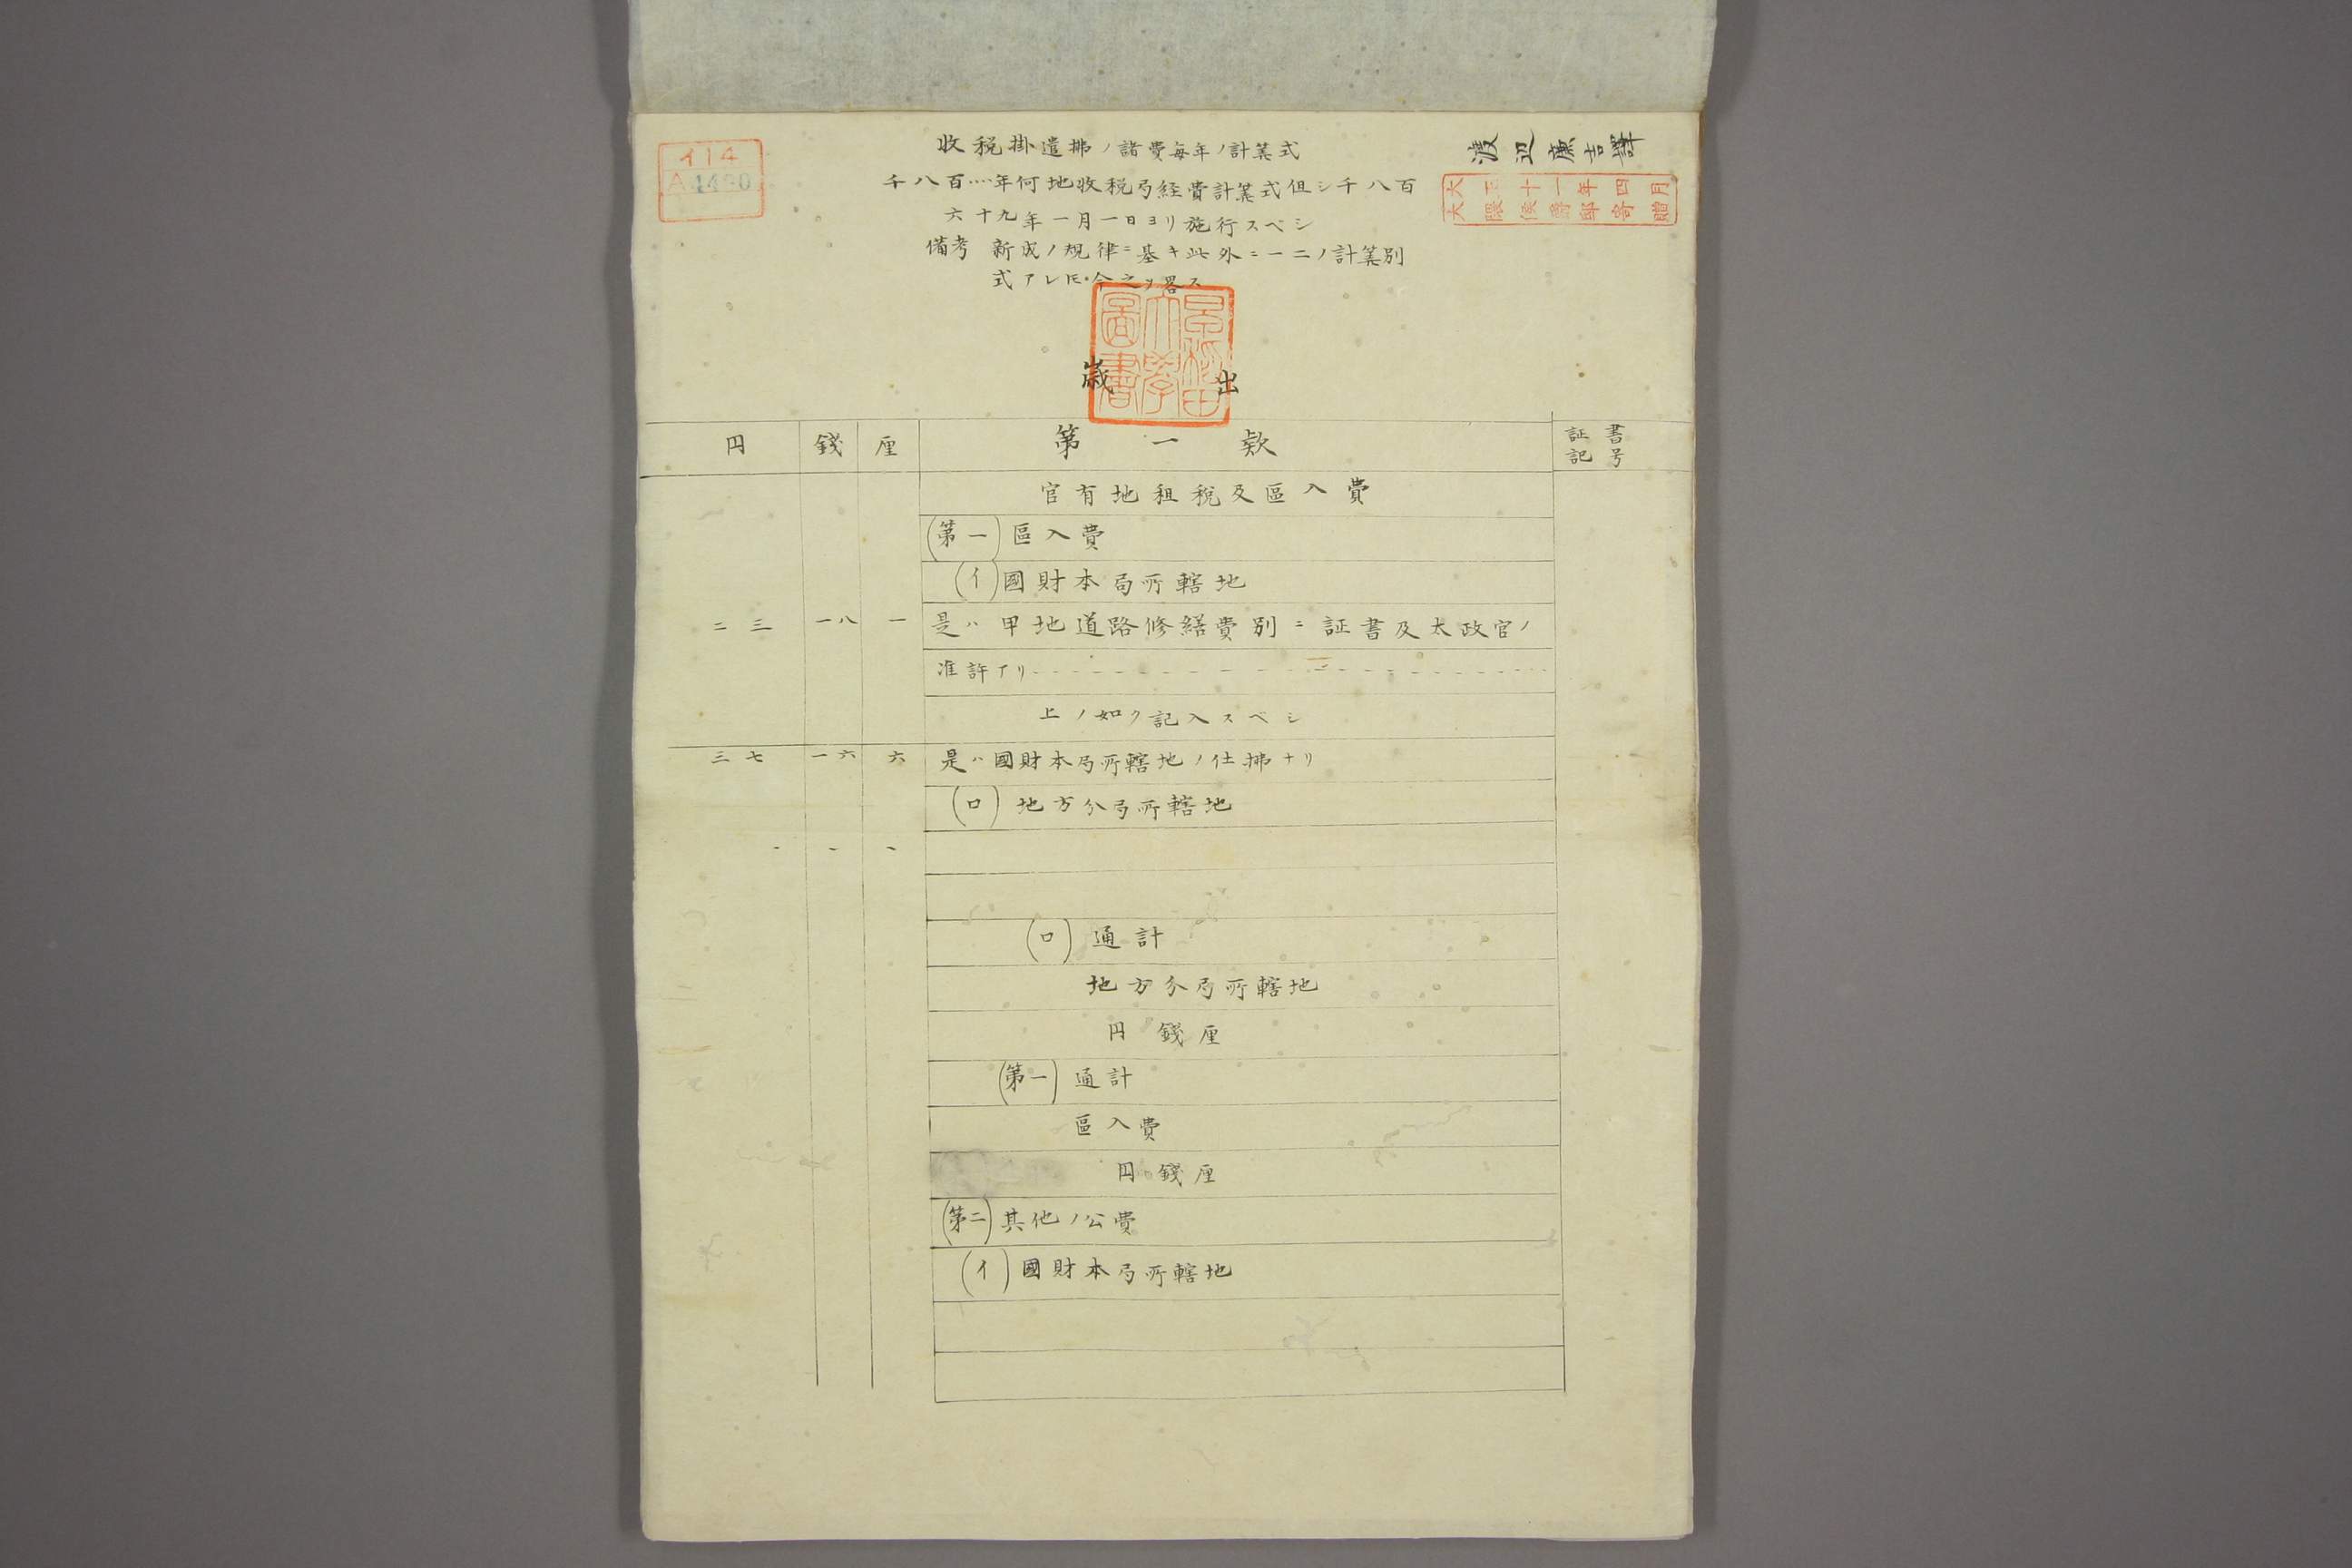 イ14
A4490
渡辺廉吉譯
大正十一年四月
大隈侯爵邸寄贈
收税掛遣拂ノ諸費毎年ノ計筭式
千八百……年何地收税局経費計筭式但シ千八百
六十九年一月一日ヨリ施行スベシ
備考 新成ノ規律ニ基キ此外ニ一二ノ計筭別
式アレ𪜈今之ヲ畧ス
早稲田大學圖書
歳出
円 錢 厘 第一欵 証書記号
官有地租税及區入費
(第一)區入費
(イ)國財本局所轄地
二三 一八 一 是ハ甲地道路修繕費別ニ証書及太政官ノ
准許アリ
上ノ如ク記入スベシ
三七 一六 六 是ハ國財本局所轄地ノ仕拂ナリ
(ロ)地方分局所轄地
(ロ)通計
地方分局所轄地
円錢厘
(第一)通計
區入費
円錢厘
(第二)其他ノ公費
(イ)國財本局所轄地